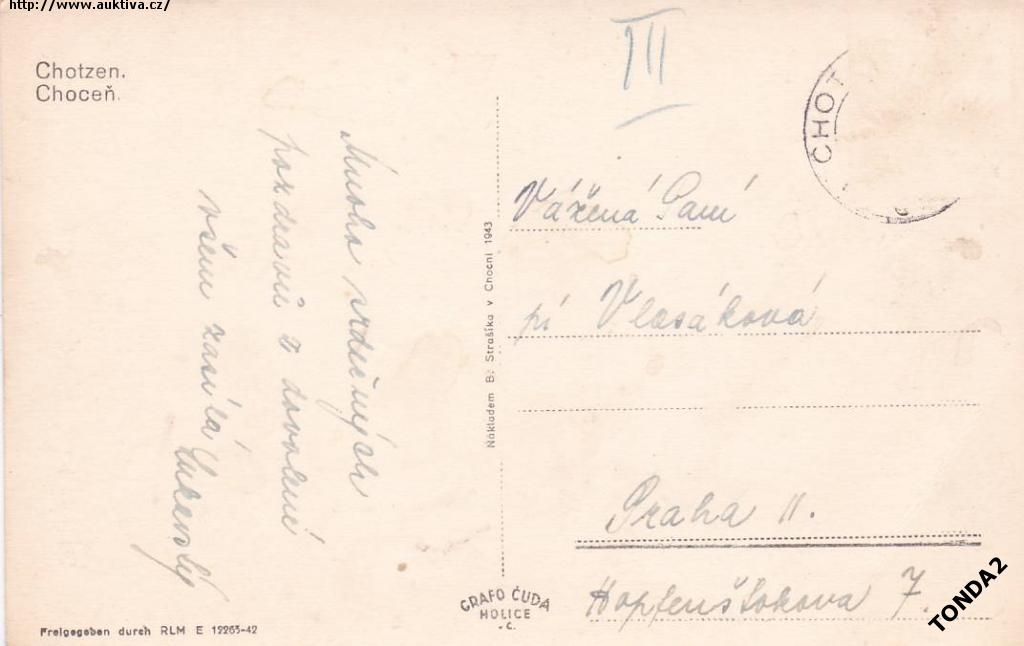 http://www.auktiva.cz/
Chotzen.
Choceň.
Mnoho srdečných
pozdravů z dovolené
všem zasílá
III
CHOT
Vážená Paní
pí Vlasáková
Praha II.
Hopfenštokova 7.
Nákladem B. Strašíka v Chocni 1943
GRAFO ČUDA
HOLICE
Č.
Freigegeben durch RLM E 12265-42
TONDA2